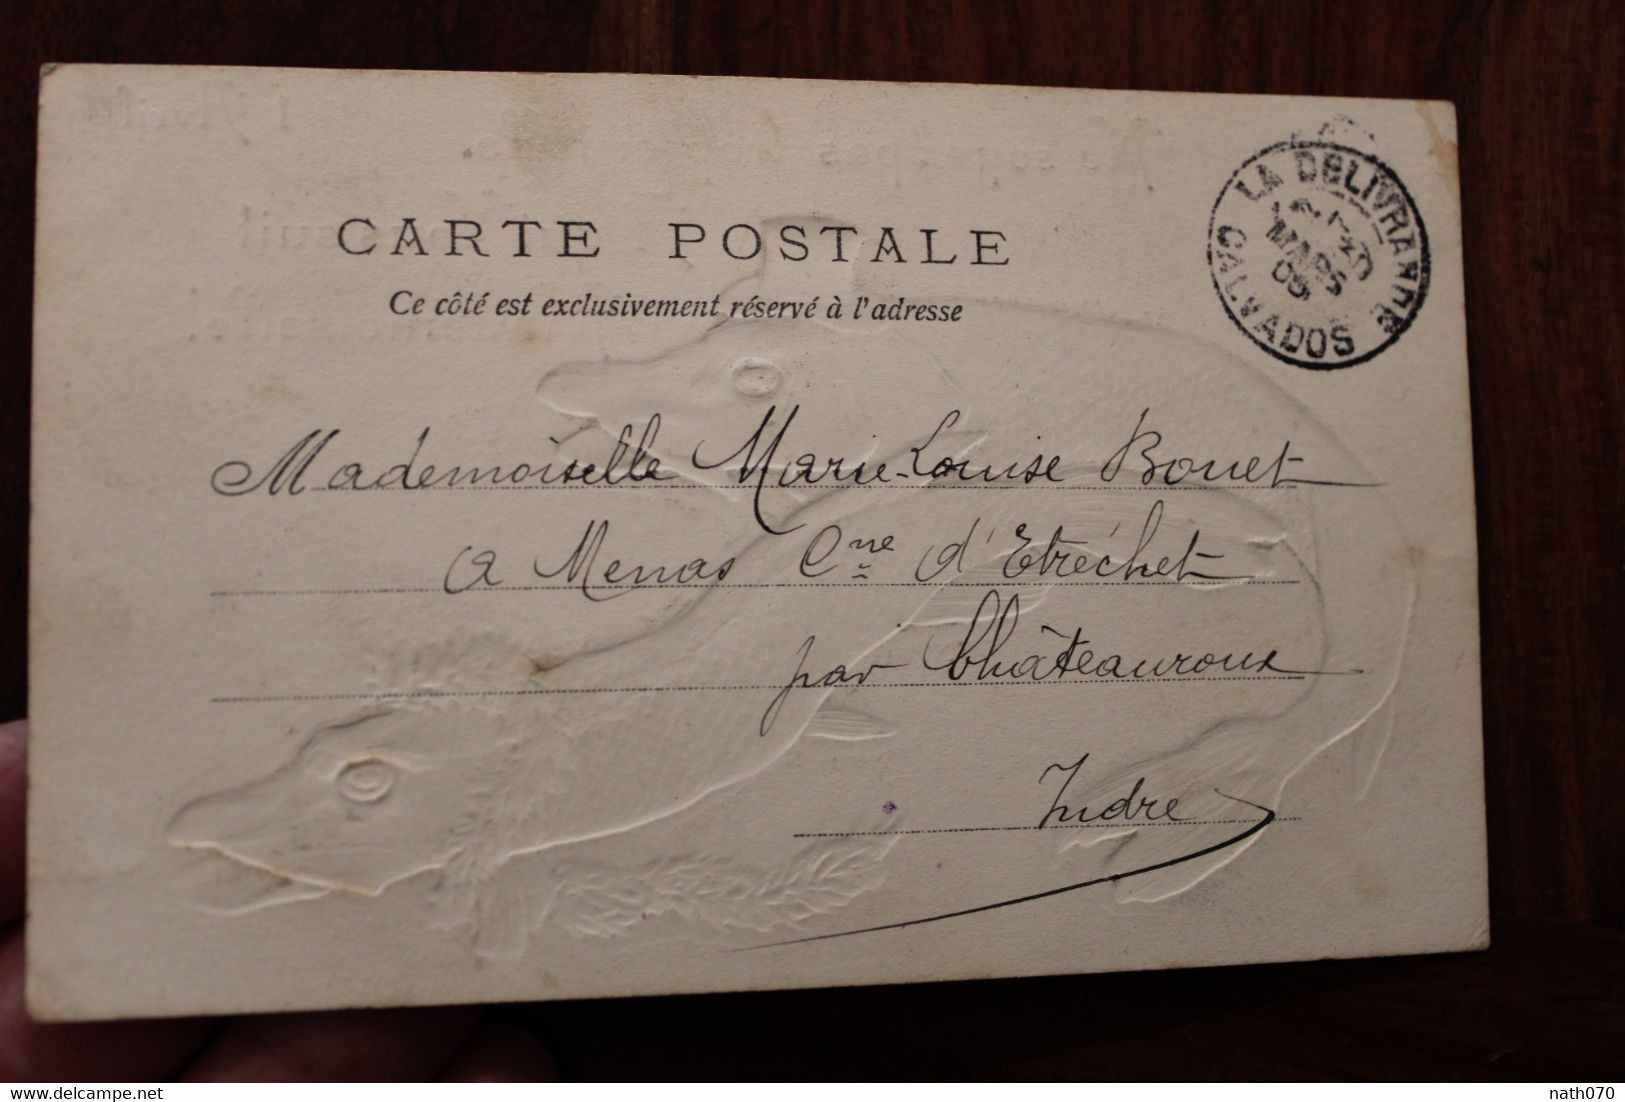 CARTE POSTALE
Ce côté est exclusivement réservé à l'adresse
LA DELIVRANDE
MARS
05
CALVADOS
Mademoiselle Marie-Louise Bonet
a Menas Cne d'Etréchet
par Châteauroux
Indre
nath070